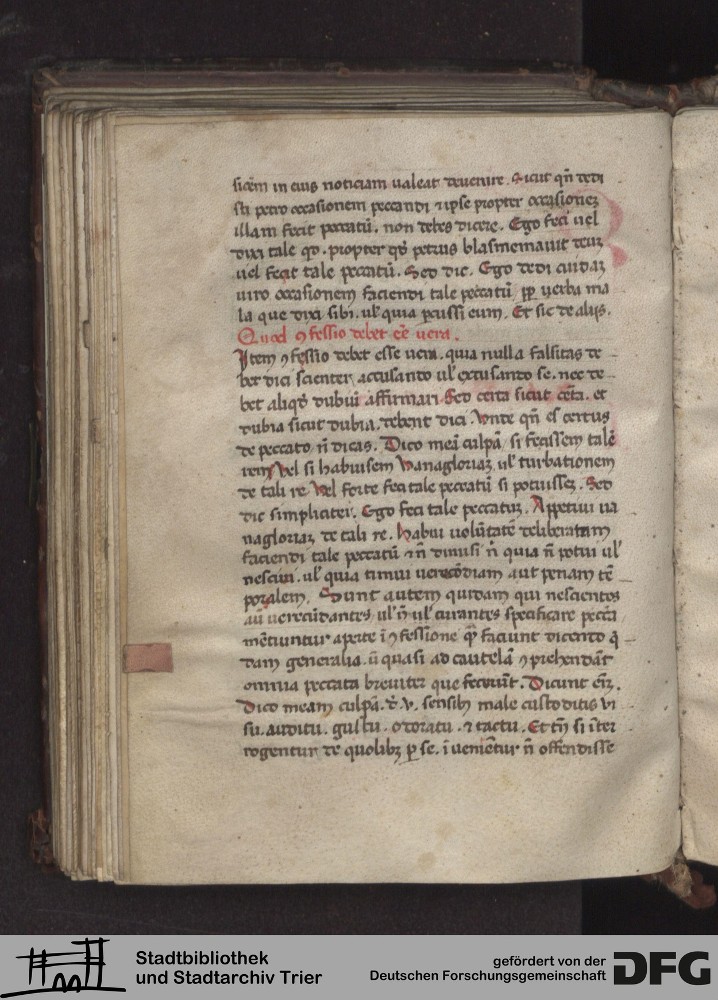 sicem in eius noticiam ualeat deuenire. Sicut qn̄ dedi
sti petro occasionem peccandi ⁊ ipse propter occasionez
illam fecit peccatū. non debes dicere. Ego feci uel
dixi tale qd. propter qd̄ petrus blasfemauit deuz
uel fecit tale peccatū. Sed dic. Ego dedi cuidaz
uiro occasionem faciendi tale peccatū ꝓp uerba ma
la que dixi sibi. ul̓ quia percussi eum. Et sic de alijs.
Quod ꝯfessio debet eē uera.
Item ꝯfessio debet esse uera. quia nulla falsitas de
bet dici scienter accusando ul̓ excusando se. nec de
bet aliqd̓ dubiū affirmari Sed certa sicut c̄ta. et
dubia sicut dubia. debent dici. Unde qn̄ es certus
de peccato n̄ dicas. Dico meā culpā si fecissem talē
rem Vel si habuisem uanagloriaz ul̓ turbationem
de tali re Vel forte feci tale peccatū si potuissez. Sed
dic simpliciter. Ego feci tale peccatuz. Appetiui ua
nagloriaz de tali re. habui uolūtatē deliberatam
faciendi tale peccatū ⁊ n̄ dimisi n̄ quia n̄ potui ul̓
nesciui. ul̓ quia timui uerecōdiam aut penam tē
poralem. Sunt autem quidam qui nescientes
aū uerecūdantes ul̓ n̄ ul̓ curantes specificare pecc̄a
mētiuntur aperte ī ꝯfessione quā faciunt dicendo q̄
dam generalia. ū quasi ad cautelā ꝯprehendāt
omnia peccata breuiter que fecerūt. Dicunt em̄.
Dico meam culpā. d̓. v. sensibꝫ male custoditis vi
su. auditu. gustu. odoratu. ⁊ tactu. Et tn̄ si īter
rogentur de quolibꝫ ꝑ se. īuenietur n̄ offendisse
Stadtbibliothek
und Stadtarchiv Trier
gefördert von der
Deutschen Forschungsgemeinschaft
DFG